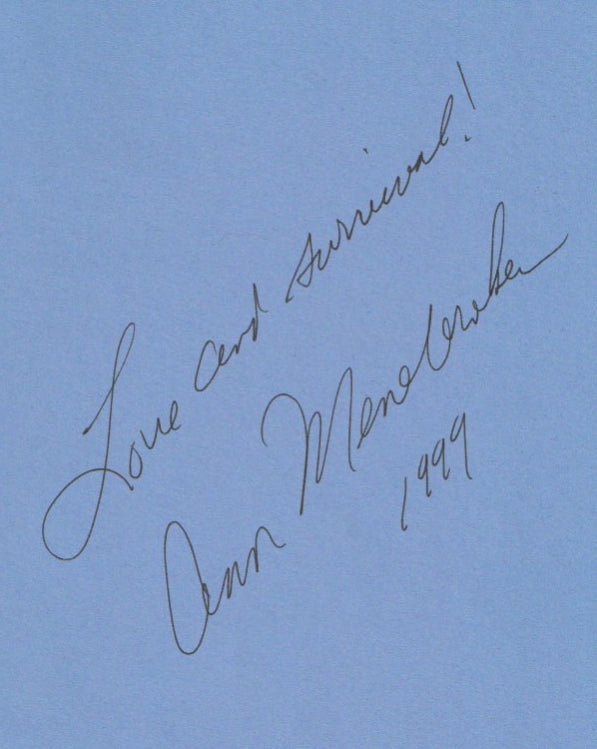 Love and survival!
Ann Menebroker
1999